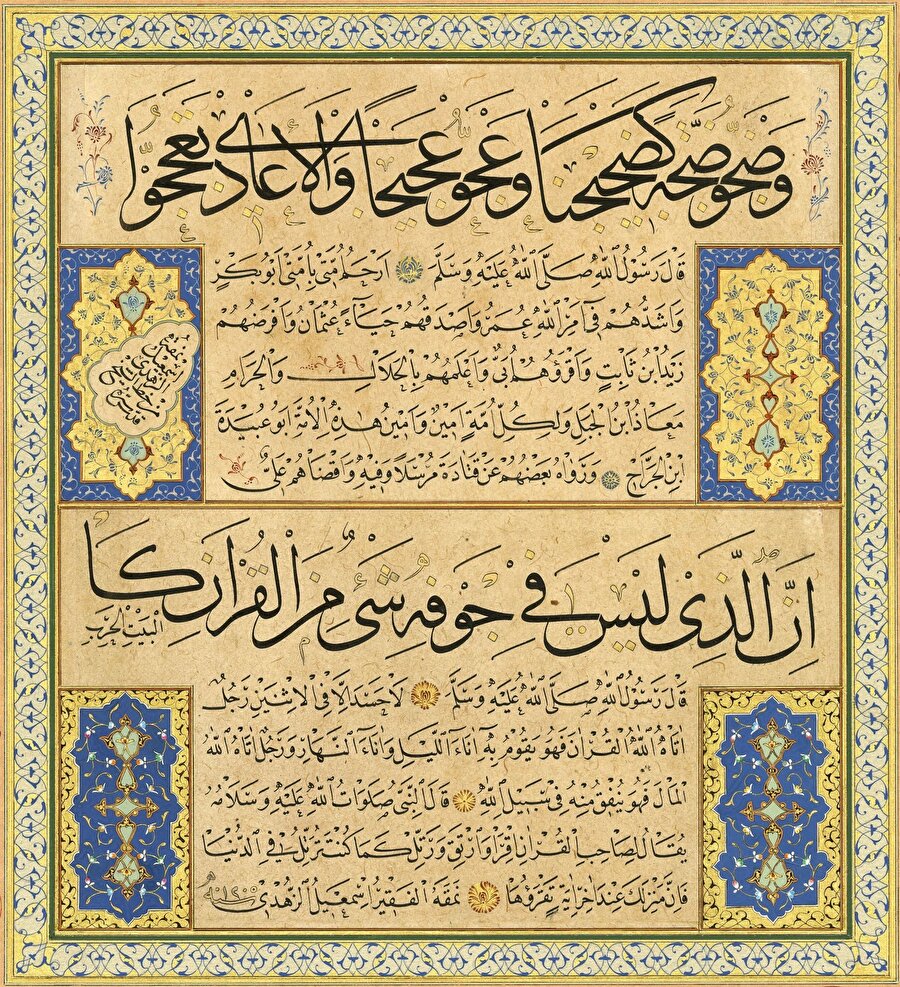 قال رسول الله صلى الله عليه وسلم ارحم امتي بامتي ابو بكر
واشدهم في امر الله عمر واصدقهم حياء عثمان وافرضهم
زيد ابن ثابت واقرؤهم ابي واعلمهم بالحلال والحرام
معاذ ابن الجبل ولكل امة امين وامين هذه الامة ابو عبيدة
ابن الجراح ورواه بعضهم عن قتادة مرسلا وفيه واقضاهم علي
ان الذي ليس في جوفه شئ من القران كا
لبيت الخرب
قال رسول الله صلى الله عليه وسلم لا حسد الا في الاثنين رجل
اتاه الله القران فهو يقوم به اناء الليل واناء النهار ورجل اتاه الله
المال فهو ينفق منه في سبيل الله قال النبي صلوات الله عليه وسلامه
يقال لصاحب القران اقرا وارتق ورتل كما كنت ترتل في الدنيا
فان منزلك عند اخر اية تقرؤها نمقه الفقير اسمعيل الزهدي سنة ١٢٠٠